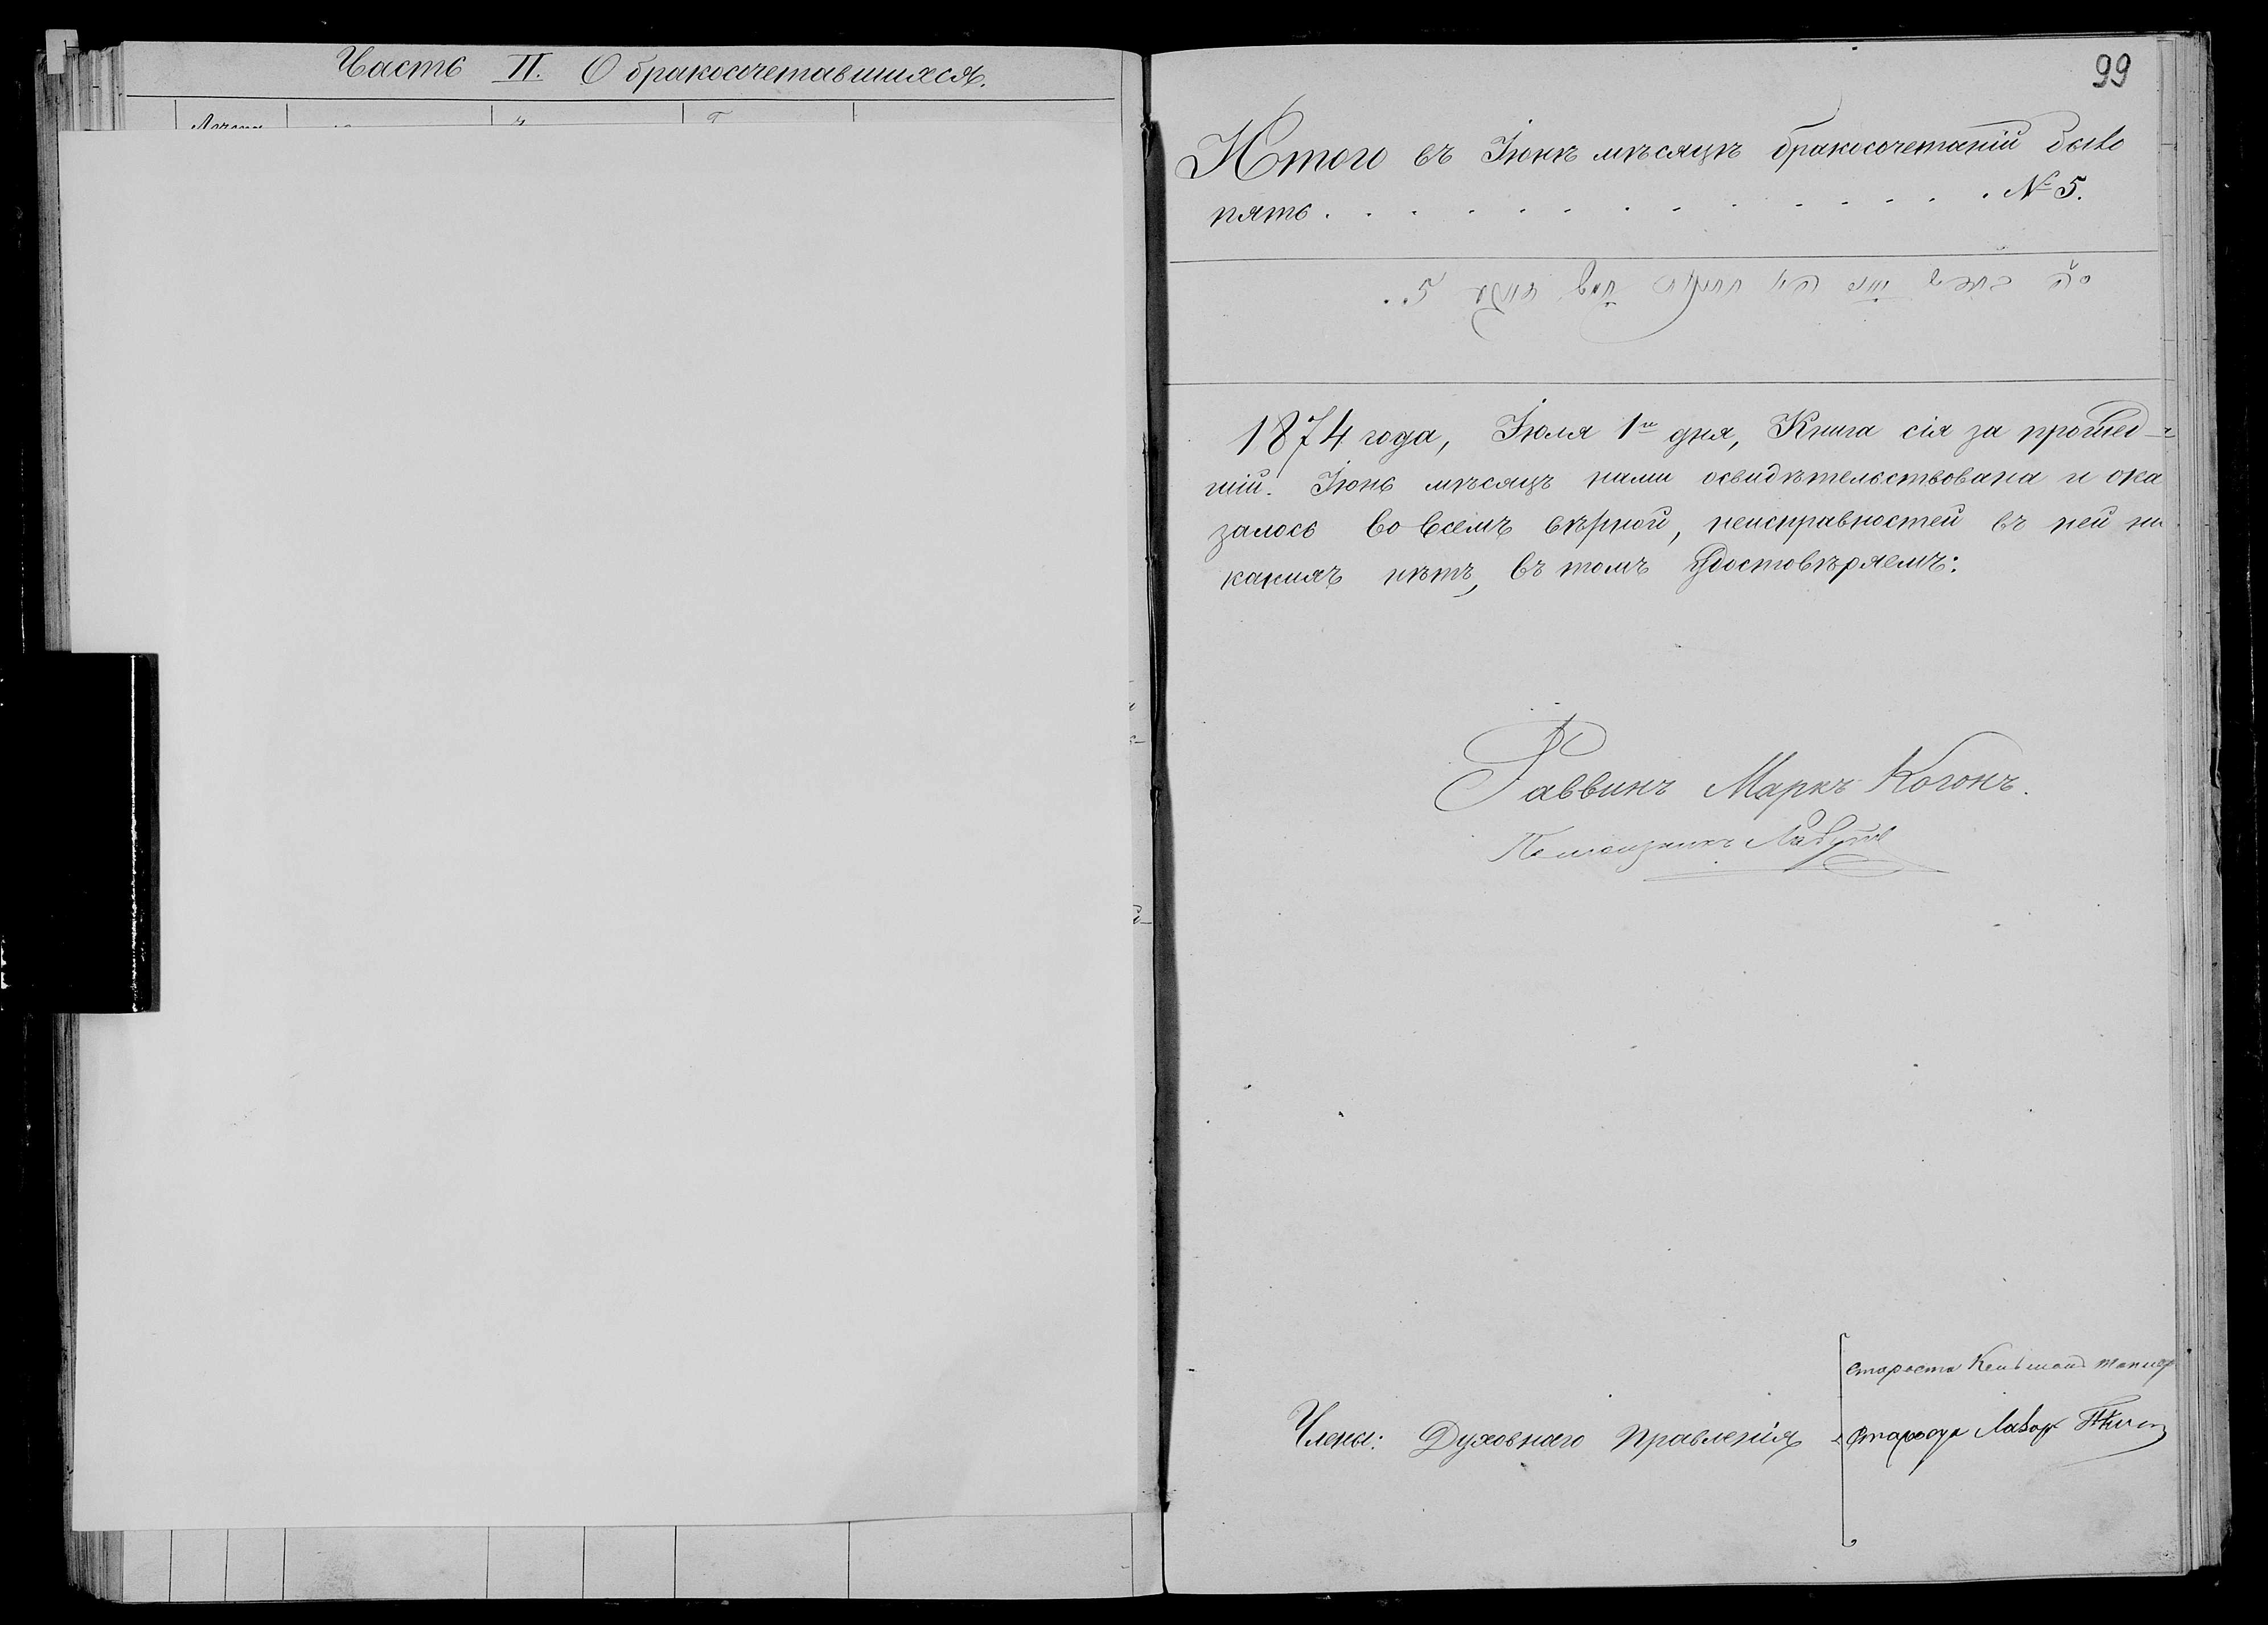 Часть II. О бракосочетавшихся.
99
Итого въ Іюнѣ мѣсяцѣ бракосочетаній было
пять . . . . . . . . . . . . . . № 5.
5.
1874 года, Іюля 1го дня, Книга сія за прошед-
шій Іюнь мѣсяцъ нами освидѣтельствована и ока
залось во всемъ вѣрной, неисправностей въ ней ни
какихъ нѣтъ, въ томъ Удостовѣряемъ:
Раввинъ Маркъ Когонъ.
Староста
Члены: Духовнаго Правленія